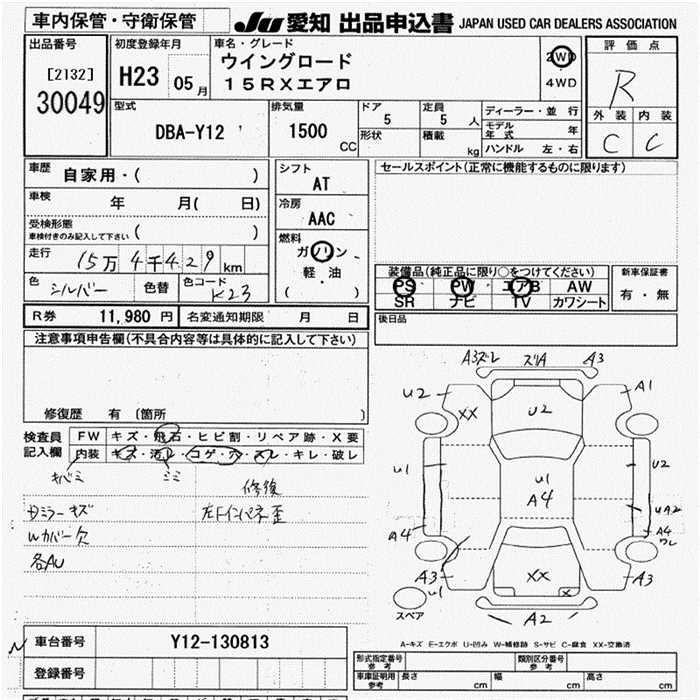 車内保管・守衛保管
JU 愛知 出品申込書 JAPAN USED CAR DEALERS ASSOCIATION
出品番号
[2132]
30049
初度登録年月
H23 05月
車名・グレード
ウイングロード
15RXエアロ
2WD
4WD
評価点
R
外装 内装
C C
型式
DBA-Y12
排気量
1500
CC
ドア
5
形状
定員
5 人
積載
kg
ディーラー・並行
モデル年式 年
ハンドル 左・右
車歴 自家用・( )
車検 年 月( 日)
受検形態
車検付きのみ記入して下さい ( )
走行 15万4千429km
色 シルバー 色替 色コード K23
シフト
AT
冷房
AAC
燃料
ガソリン
軽・油
( )
セールスポイント(正常に機能するものに限ります)
装備品(純正品に限り○をつけてください)
PS PW エアB AW
SR ナビ TV カワシート
新車保証書
有・無
R券 11,980円 名変通知期限 月 日
後日品
注意事項申告欄(不具合内容等は具体的に記入して下さい)
修復歴 有 〔箇所 〕
検査員記入欄
FW キズ・飛石・ヒビ割・リペア跡・X要
内装 キズ・汚れ・コゲ・穴・スレ・キレ・破レ
キバミ
ミミ
修復
ミラーキズ
左Fインパネ歪
Wカバー欠
各AU
A3ズレ ズリA A3
U2 XX U2 A1
U1 U1 A4 U2
UA2
A4 A4 ワレ
A3 U1 XX X A3
スペア
A2
A-キズ E-エクボ U-凹み W-補修跡 S-サビ C-腐食 XX-交換済
車台番号 Y12-130813
登録番号
形式指定番号 参考
類別区分番号 参考
車庫証明用 参考 長さ cm 幅 cm 高さ cm